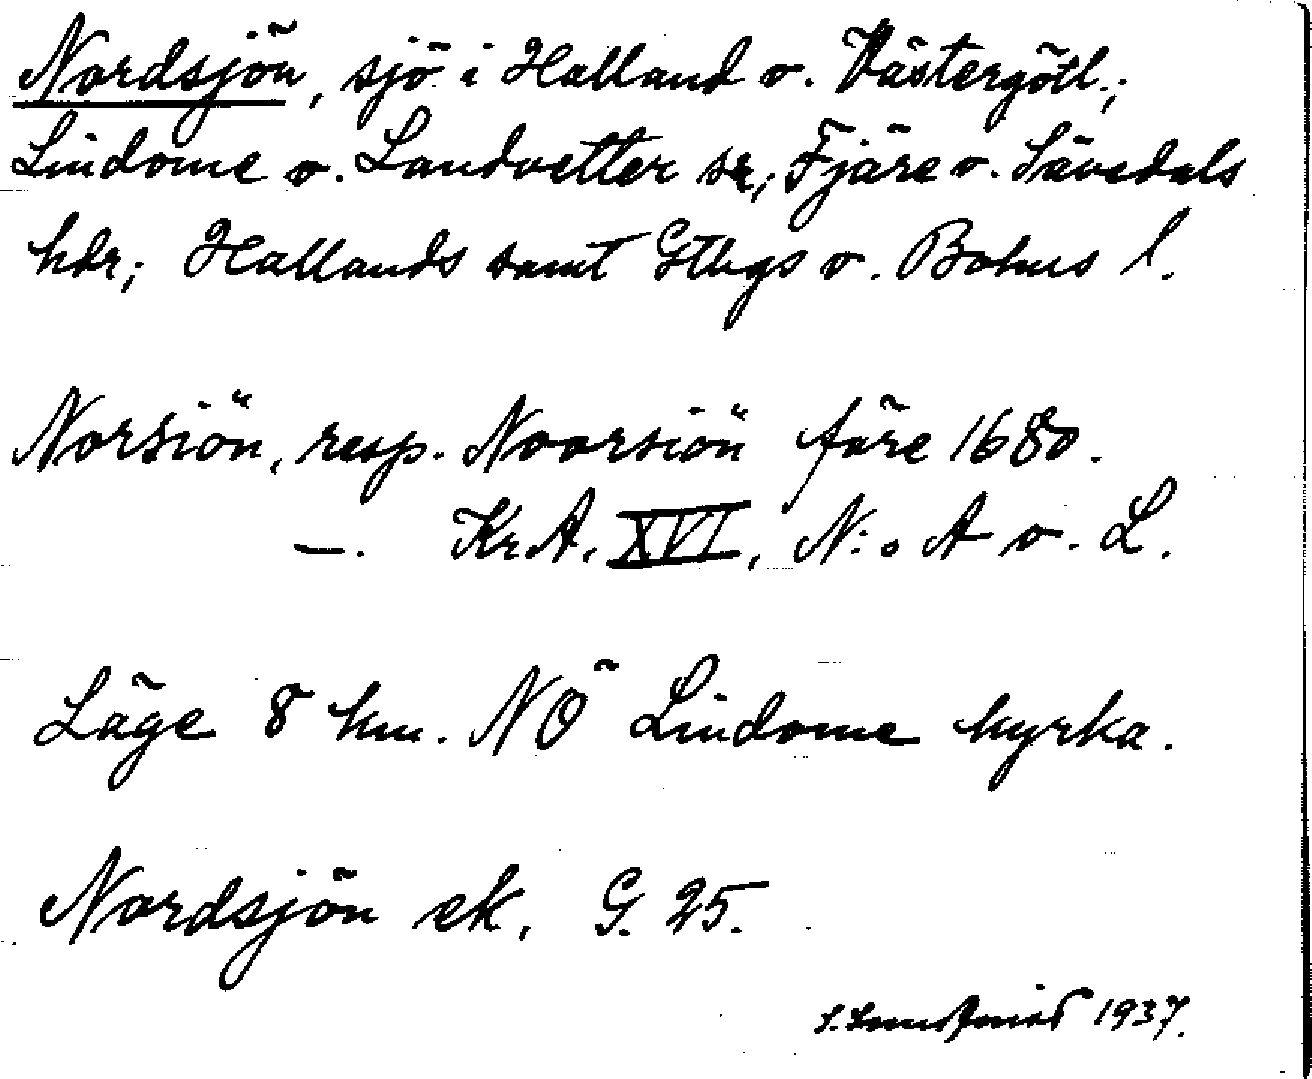 Nordsjön, sjö i Halland o. Västergötl.;
Lindome o. Landvetter sr, Fjäre o. Sävedals
hdr; Hallands samt Gtbgs o. Bohus l.
Norsiön, resp. Noorsiön före 1680.
—. KrA, XVI, N:o A o. L.
Läge 8 km. NÖ Lindome kyrka.
Nordsjön ek, G. 25.
1937.